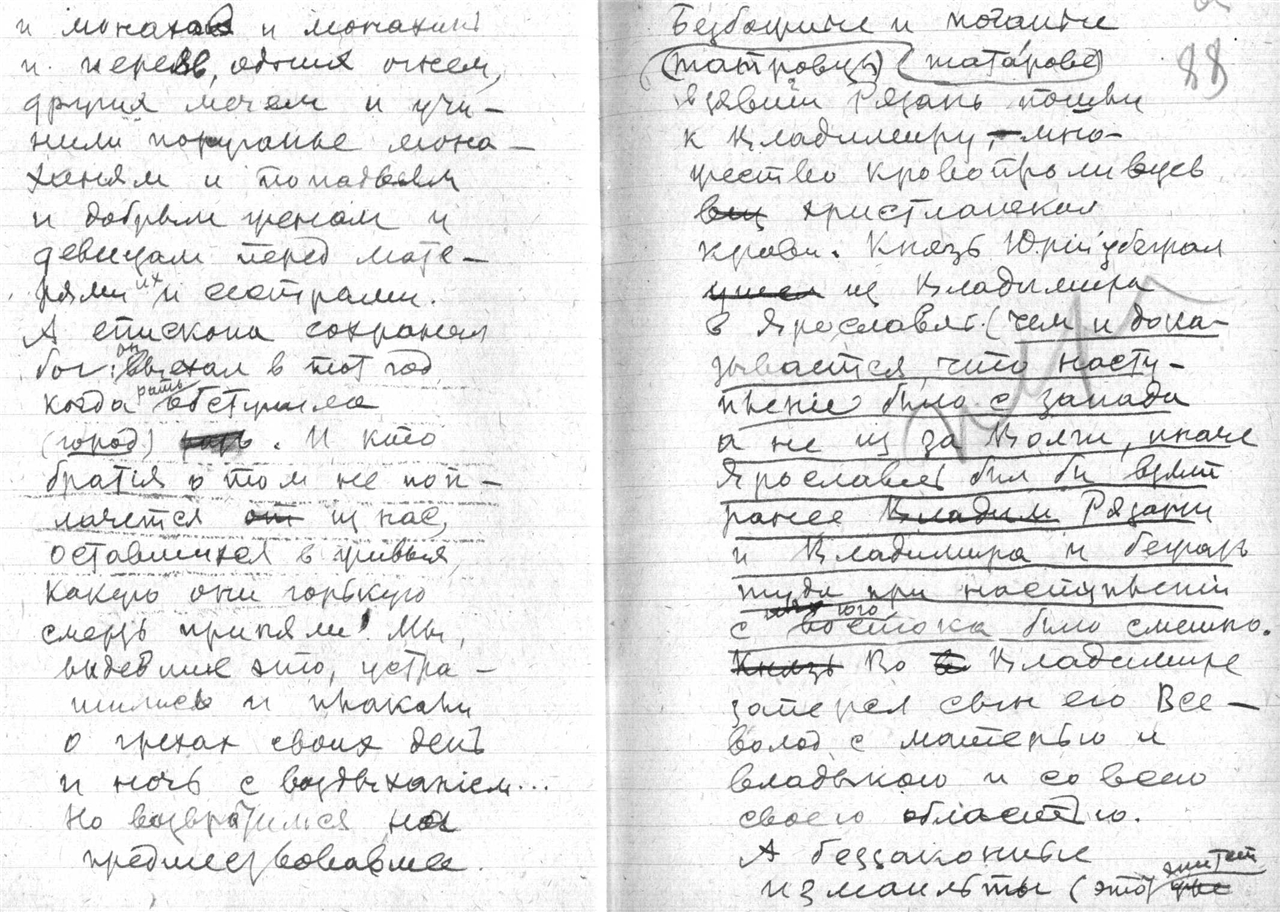 и монахов и монахинь
и иереев, одних огнем,
других мечем и учи-
нили поруганье мона-
хиням и попадьям
и добрым женам и
девицам перед мате-
рями их и сестрами.
А епископа сохранил
бог: он выехал в тот год
когда рать обступила
(город). И кто
братия о том не поп-
лачется из нас,
оставшихся в живых,
какую они горькую
смерть приняли! Мы,
видевшие это, устра-
шились и плакали
о грехах своих день
и ночь с воздыханием...
Но возвратимся на
предшествовавшее.
88
Безбожные и поганые
(татровец) (тата́рове)
взявши Рязань пошли
к Владимиру, мно-
жество кровопроливцев
христианская
крови. Князь Юрий убежал
ушел из Владимира
в Ярославль (чем и дока-
зывается, что насту-
пление было с запада
а не из за Волги, иначе
Ярославль был бы взят
ранее Владим Рязани
и Владимира и бежать
туда при наступлении
с юго востока было смешно.
Князь Во Владимире
заперся сын его Все-
волод с матерью и
владыкою и со всею
своею областью.
А беззаконные
измаильты (это эпитет